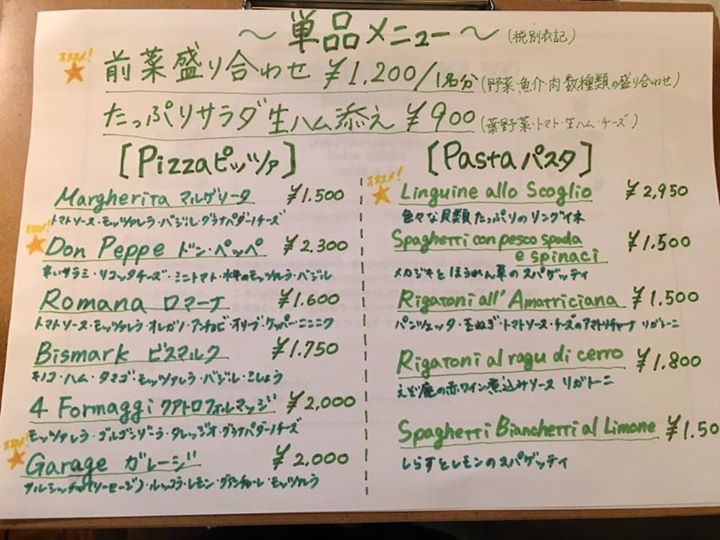 ～単品メニュー～(税別表記)
オススメ!
前菜盛り合わせ ¥1,200/1名分(野菜・魚介・肉 数種類の盛り合わせ)
たっぷりサラダ生ハム添え ¥900(葉野菜・トマト・生ハム・チーズ)
[Pizzaピッツァ]
Margherita マルゲリータ ¥1.500
トマトソース・モッツァレラ・バジル・グラナパダーノチーズ
オススメ!
Don Peppe ドン・ペッペ ¥2,300
辛いサラミ・リコッタチーズ・ミニトマト・水牛のモッツァレラ・バジル
Romana ロマーナ ¥1.600
トマトソース・モッツァレラ・オレガノ・アンチョビ・オリーブ・ケッパー・ニンニク
Bismark ビスマルク ¥1.750
キノコ・ハム・タマゴ・モッツァレラ・バジル・こしょう
4 Formaggi クアトロフォルマッジ ¥2,000
モッツァレラ・ゴルゴンゾーラ・タレッジオ・グラナパダーノチーズ
オススメ!
Garage ガレージ ¥2,000
ルッコラ・レモン・グアンチャーレ・モッツァレラ
[Pastaパスタ]
オススメ!
Linguine allo Scoglio ¥2,950
色々な貝類たっぷりのリングイネ
Spaghetti con pesco spada
e spinaci ¥1,500
メカジキとほうれん草のスパゲッティ
Rigatoni all'Amatriciana ¥1,500
パンツェッタ・玉ねぎ・トマトソース・チーズのアマトリチャーナ リガトーニ
Rigatoni al ragu di cerro ¥1,800
えぞ鹿の赤ワイン煮込みソース リガトーニ
Spaghetti Bianchetti al Limone ¥1.50
しらすとレモンのスパゲッティ